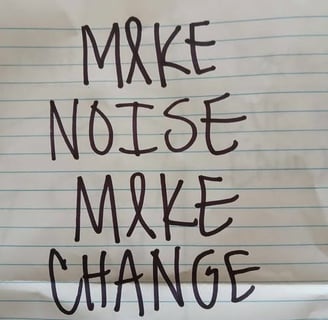 MAKE
NOISE
MAKE
CHANGE